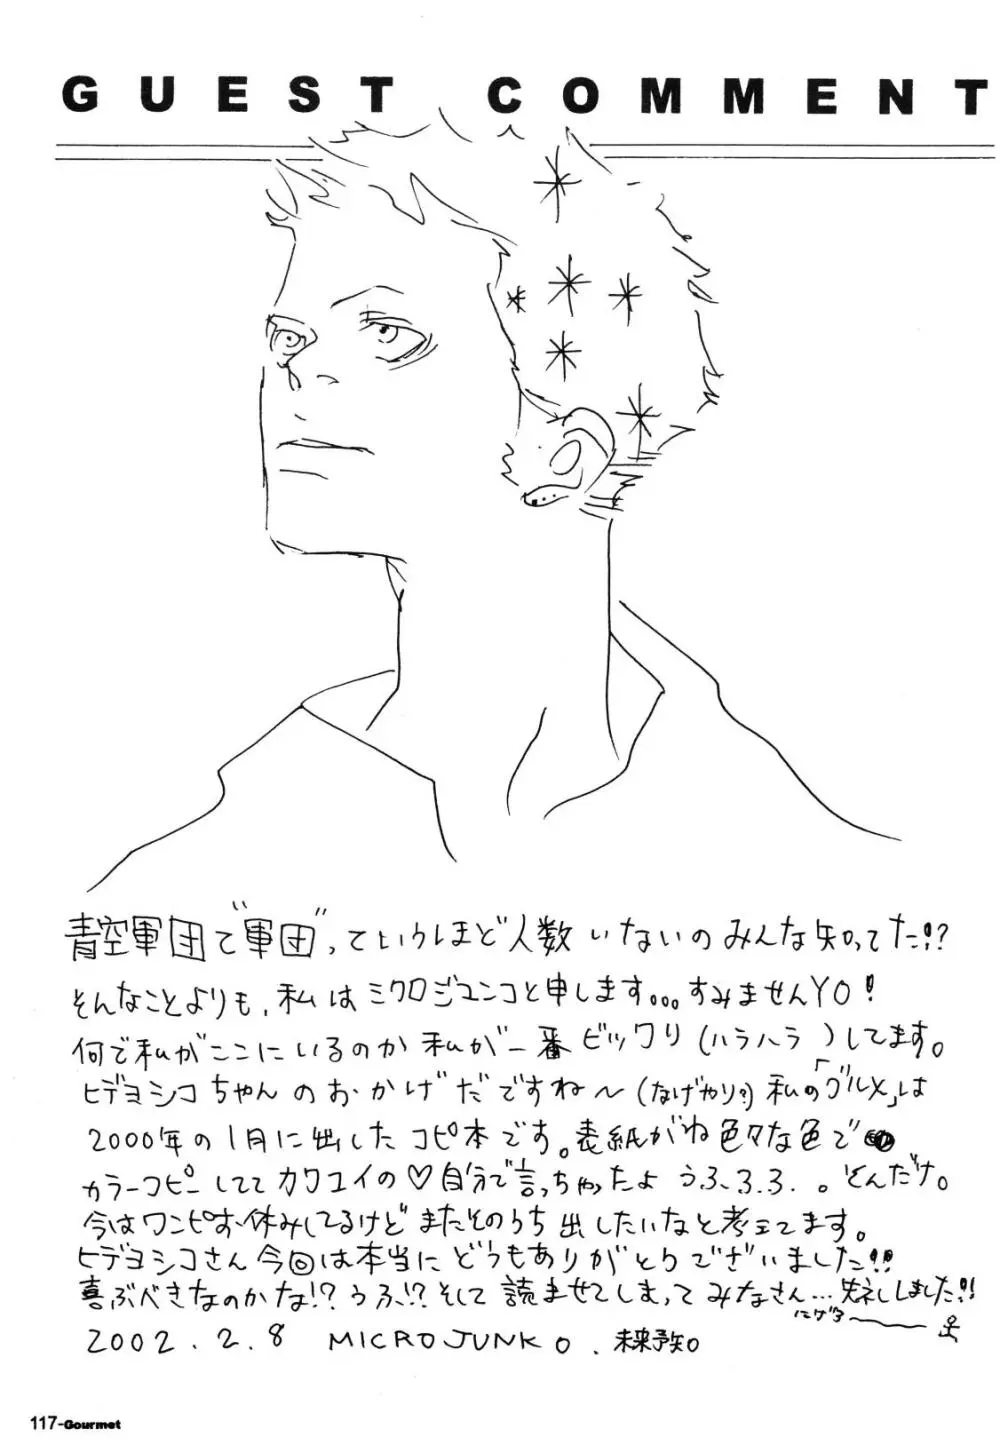 GUEST COMMENT
青空軍団で"軍団"っていうほど人数いないのみんな知ってた!?
そんなことよりも、私はミクロジュンコと申します。。。すみませんYO!
何で私がここにいるのか私が一番ビックリ(ハラハラ)してます。
ヒデヨシコちゃんのおかげだですね〜(なげやり?)私の「グルメ」は
2000年の1月に出したコピ本です。表紙がね色々な色で
カラーコピーしててカワユイの♡自分で言っちゃったようふふふ。どんだけ。
今はワンピお休みしてるけどまたそのうち出したいなと考えてます。
ヒデヨシコさん今回は本当にどうもありがとうございました!!
喜ぶべきなのかな!?うふ!?そして読ませてしまってみなさん…失礼しました!!
にげる
2002.2.8 MICROJUNKO.
117-Gourmet